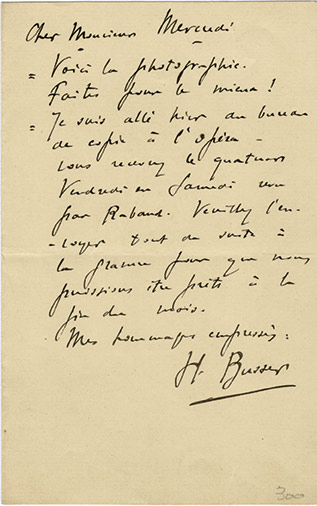 Cher Monsieur Mercredi
= Voici la photographie.
Faites pour le mieux !
= Je suis allé hier au bureau
de copie à l'Opéra -
vous recevrez le quatuor
Vendredi ou Samedi vu
par Rabaud. Veuillez l'en-
-voyer tout de suite à
la gravure pour que nous
puissions être prêts à la
fin du mois.
Mes hommages empressés :
H. Busser
300